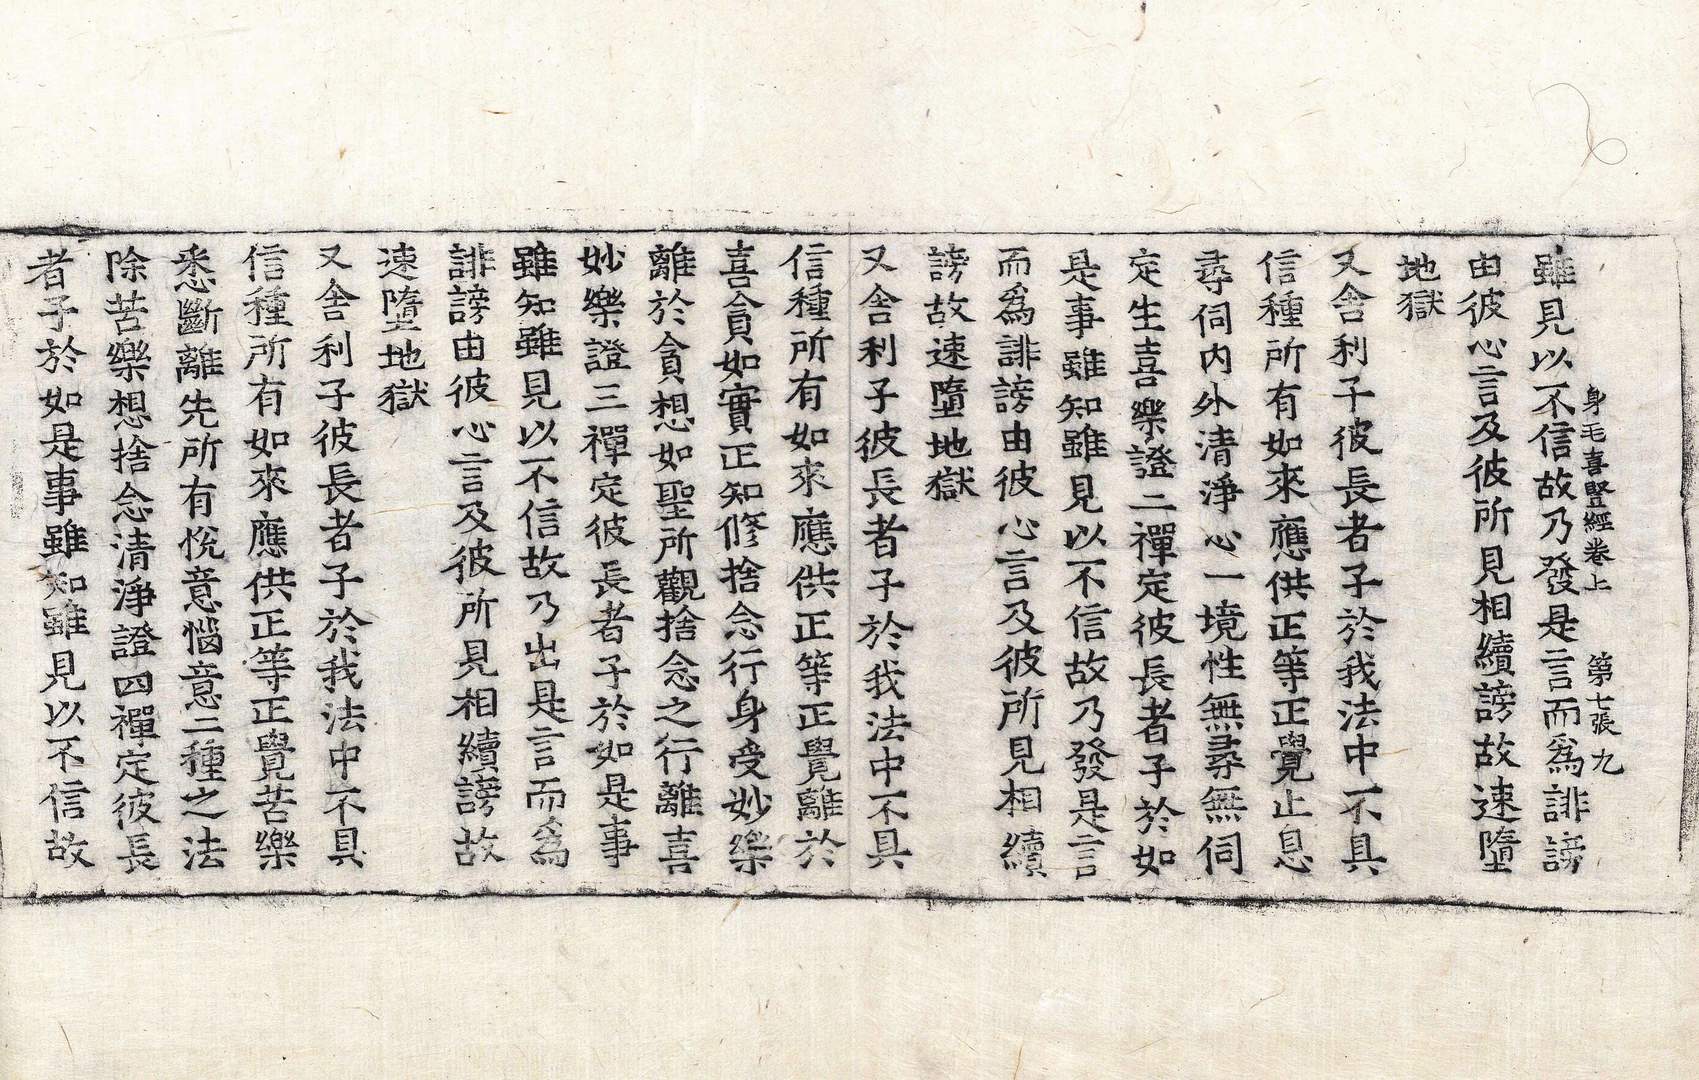 雖見以不信故乃發是言而爲誹謗
身毛喜豎經卷上　第七張　九
由彼心言及彼所見相續謗故速墮
地獄
又舍利子彼長者子於我法中不具
信種所有如來應供正等正覺止息
尋伺内外清淨心一境性無尋無伺
定生喜樂證二禪定彼長者子於如
是事雖知雖見以不信故乃發是言
而爲誹謗由彼心言及彼所見相續
謗故速墮地獄
又舍利子彼長者子於我法中不具
信種所有如來應供正等正覺離於
喜貪如實正知修捨念行身受妙樂
離於貪想如聖所觀捨念之行離喜
妙樂證三禪定彼長者子於如是事
雖知雖見以不信故乃出是言而爲
誹謗由彼心言及彼所見相續謗故
速墮地獄
又舍利子彼長者子於我法中不具
信種所有如來應供正等正覺苦樂
悉斷離先所有悅意惱意二種之法
除苦樂想捨念清淨證四禪定彼長
者子於如是事雖知雖見以不信故